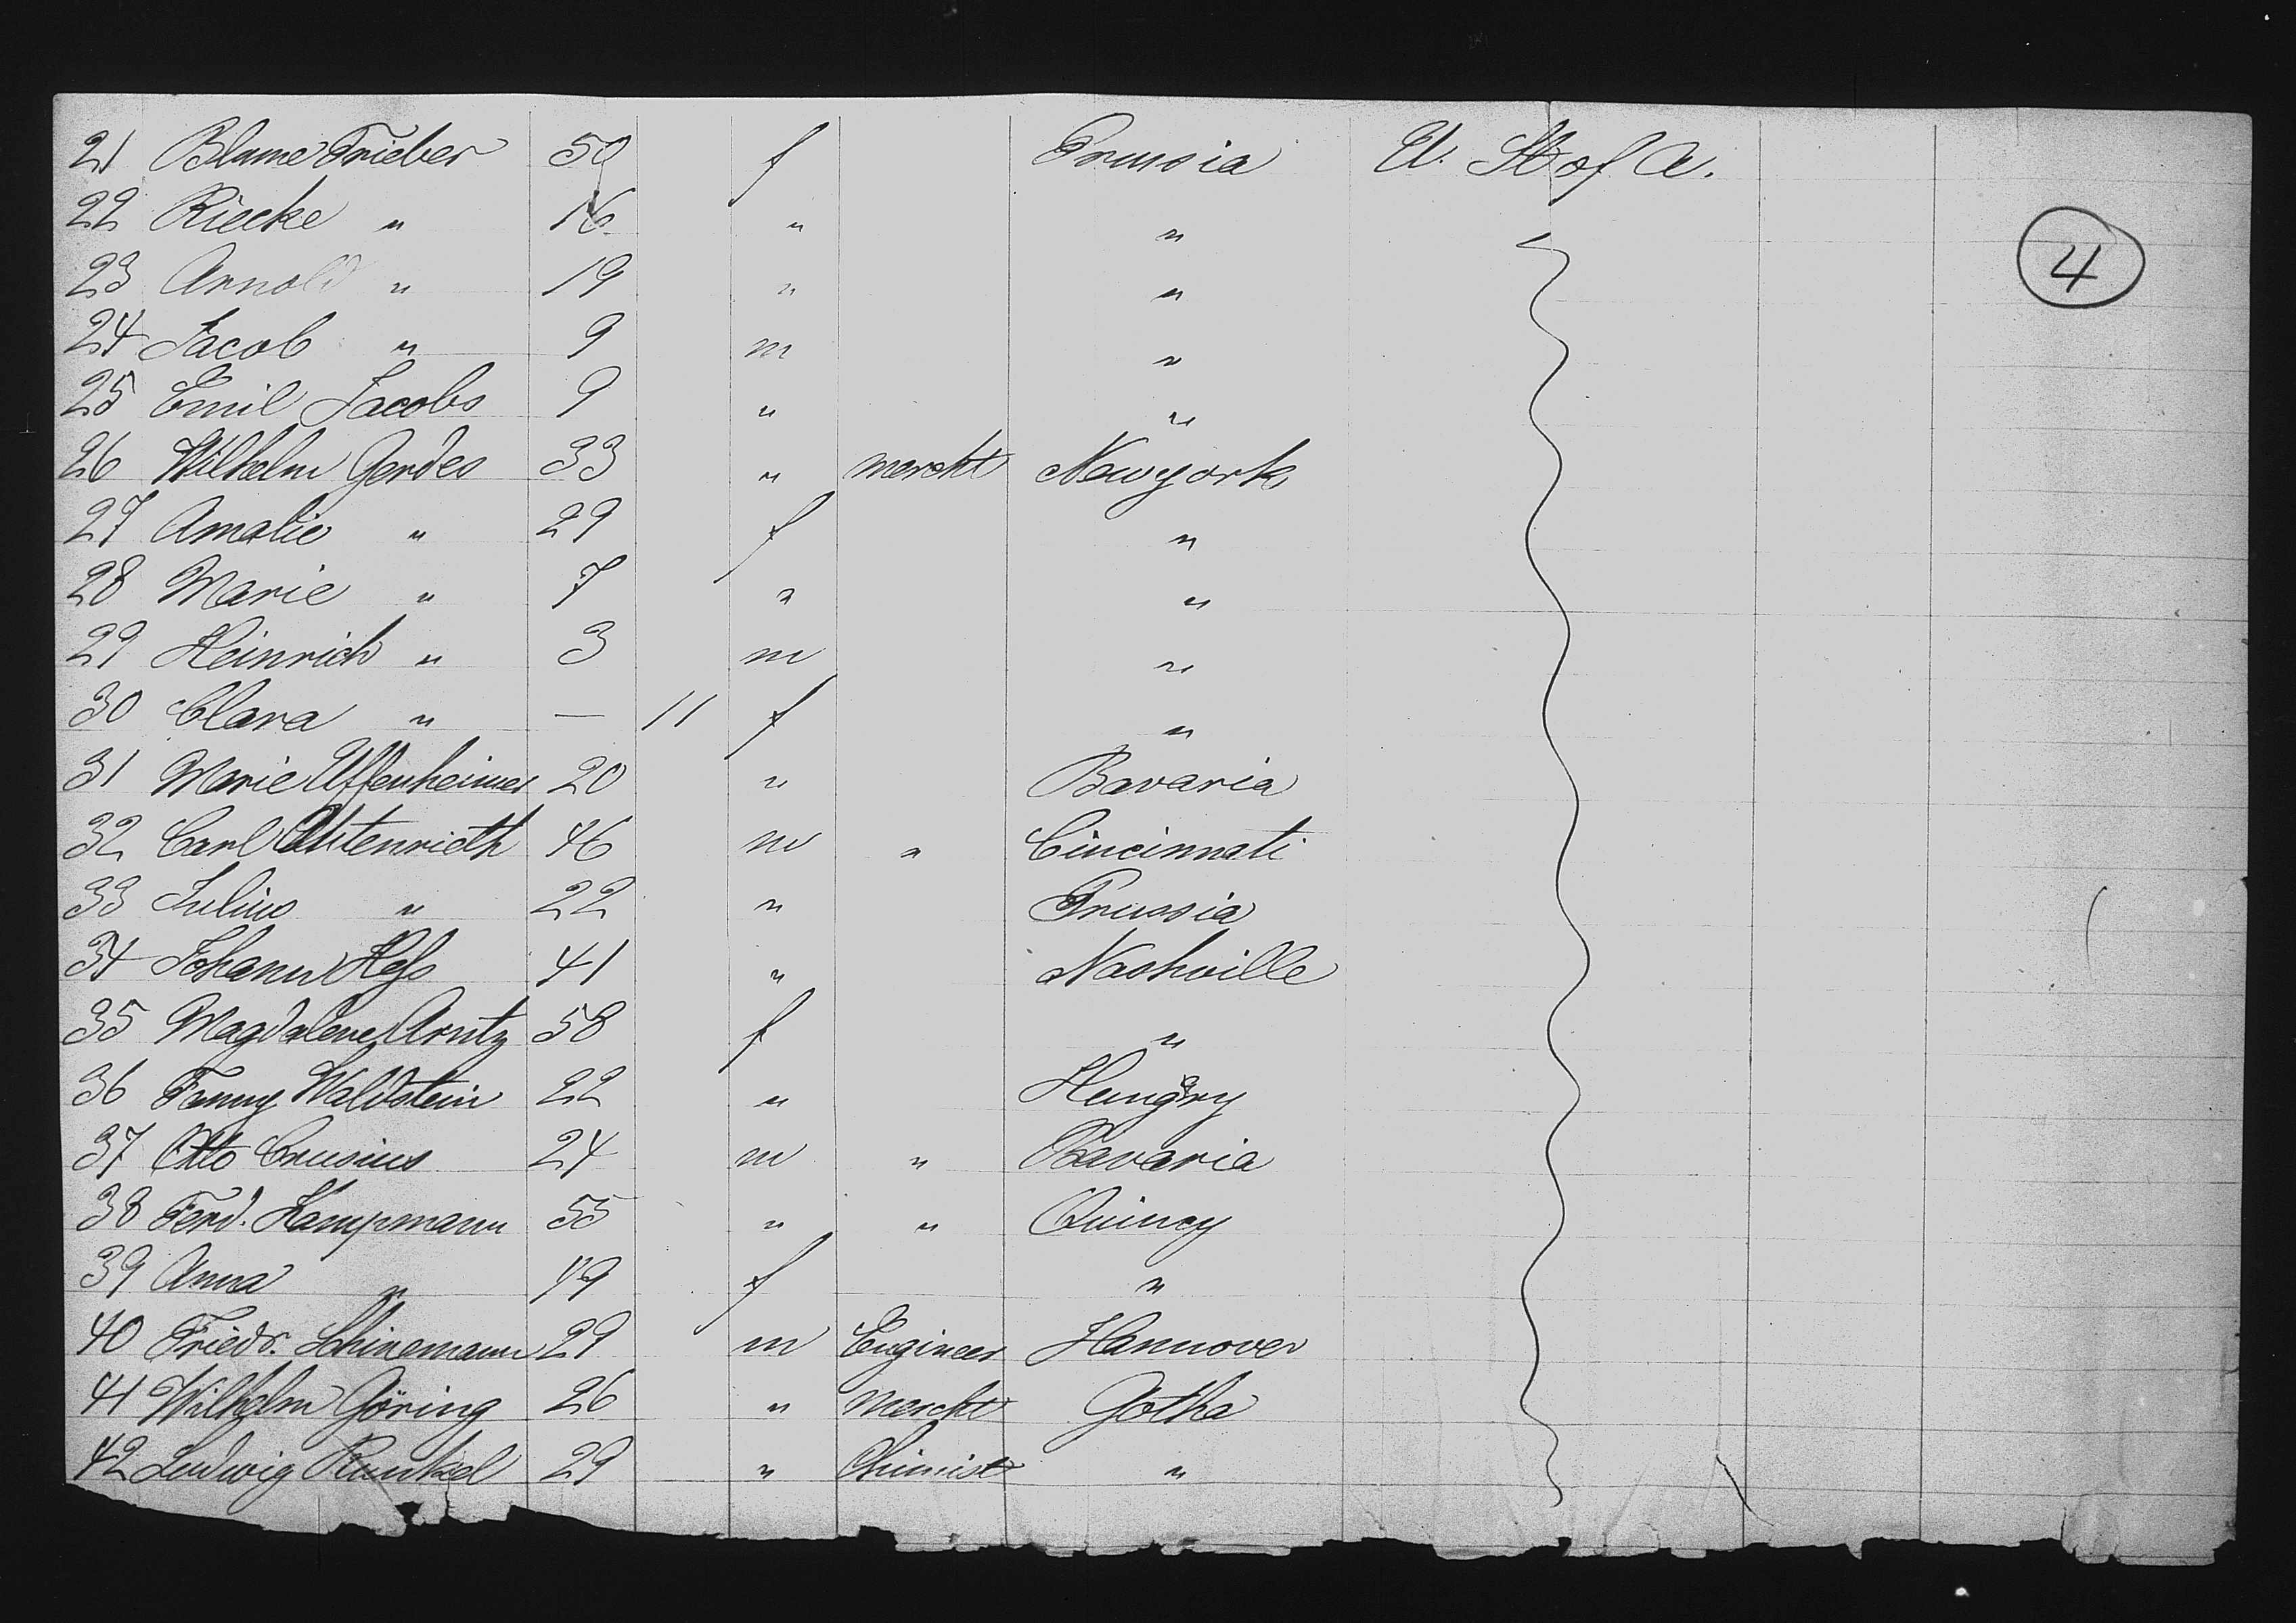 21 Blume Trieber 50 f Prussia U. St of A.
22 Riecke " 16 " "
23 Arnold " 19 " "
4
24 Jacob " 9 m "
25 Emil Jacobs 9 " "
26 Wilhelm Gerdes 33 " mercht Newyork
27 Amalie " 29 f "
28 Marie " 7 " "
29 Heinrich " 3 m "
30 Clara " — 11 f "
31 Marie Uffenheimer 20 " Bavaria
32 Carl Autenrieth 46 m " Cincinnati
33 Julius " 22 " Prussia
34 Johann Heſs 41 " Nashville
35 Magdalene Arntz 58 f "
36 Fanny Waldstein 22 " Hungry
37 Otto Crusius 24 m " Bavaria
38 Ferd. Kampmann 55 " " Quincy
39 Anna " 49 f "
40 Friedr. Schinemann 29 m Engineer Hannover
41 Wilhelm Göring 26 " Mercht Gotha
42 Ludwig Runkel 29 " Chimist "